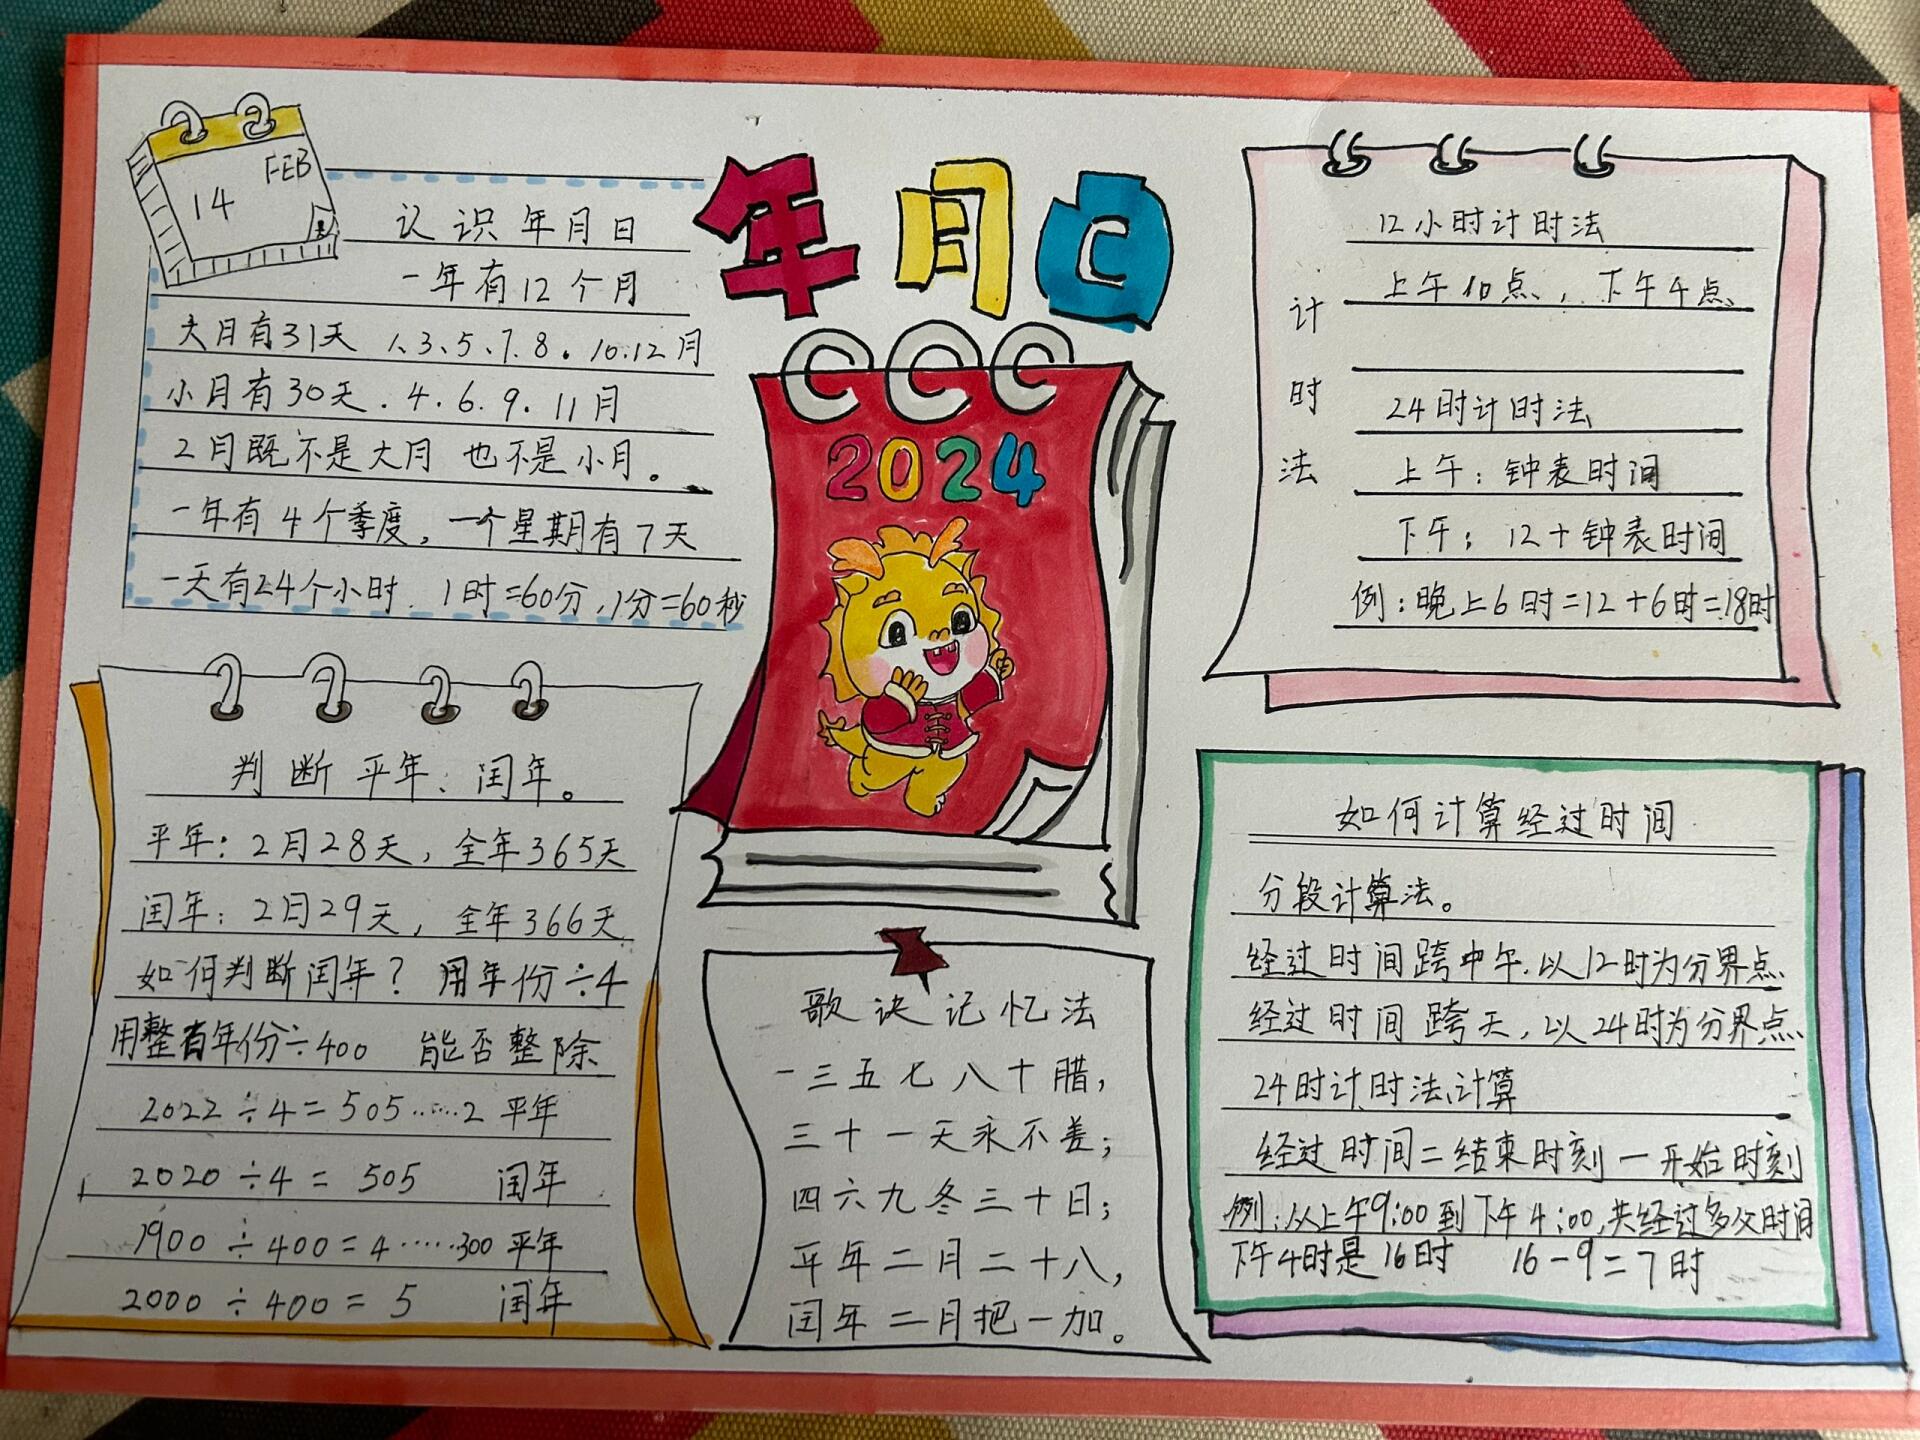 年月日
FEB
14
认识年月日
一年有12个月
大月有31天 1、3、5、7、8、10、12月
小月有30天、4、6、9、11月
2月既不是大月 也不是小月。
一年有4个季度，一个星期有7天
一天有24个小时、1时=60分，1分=60秒
2024
计时法
12小时计时法
上午10点、下午4点
24时计时法
上午：钟表时间
下午：12+钟表时间
例：晚上6时=12+6时=18时
判断平年、闰年。
平年：2月28天，全年365天
闰年：2月29天，全年366天
如何判断闰年？ 用年份÷4
用整百年份÷400 能否整除
2022÷4=505……2 平年
2020÷4= 505 闰年
1900÷400=4……300 平年
2000÷400=5 闰年
歌诀记忆法
一三五七八十腊，
三十一天永不差；
四六九冬三十日；
平年二月二十八，
闰年二月把一加。
如何计算经过时间
分段计算法。
经过时间跨中午，以12时为分界点
经过时间跨天，以24时为分界点
24时计时法计算
经过时间=结束时刻-开始时刻
例：从上午9:00到下午4:00，共经过多少时间
下午4时是16时 16-9=7时